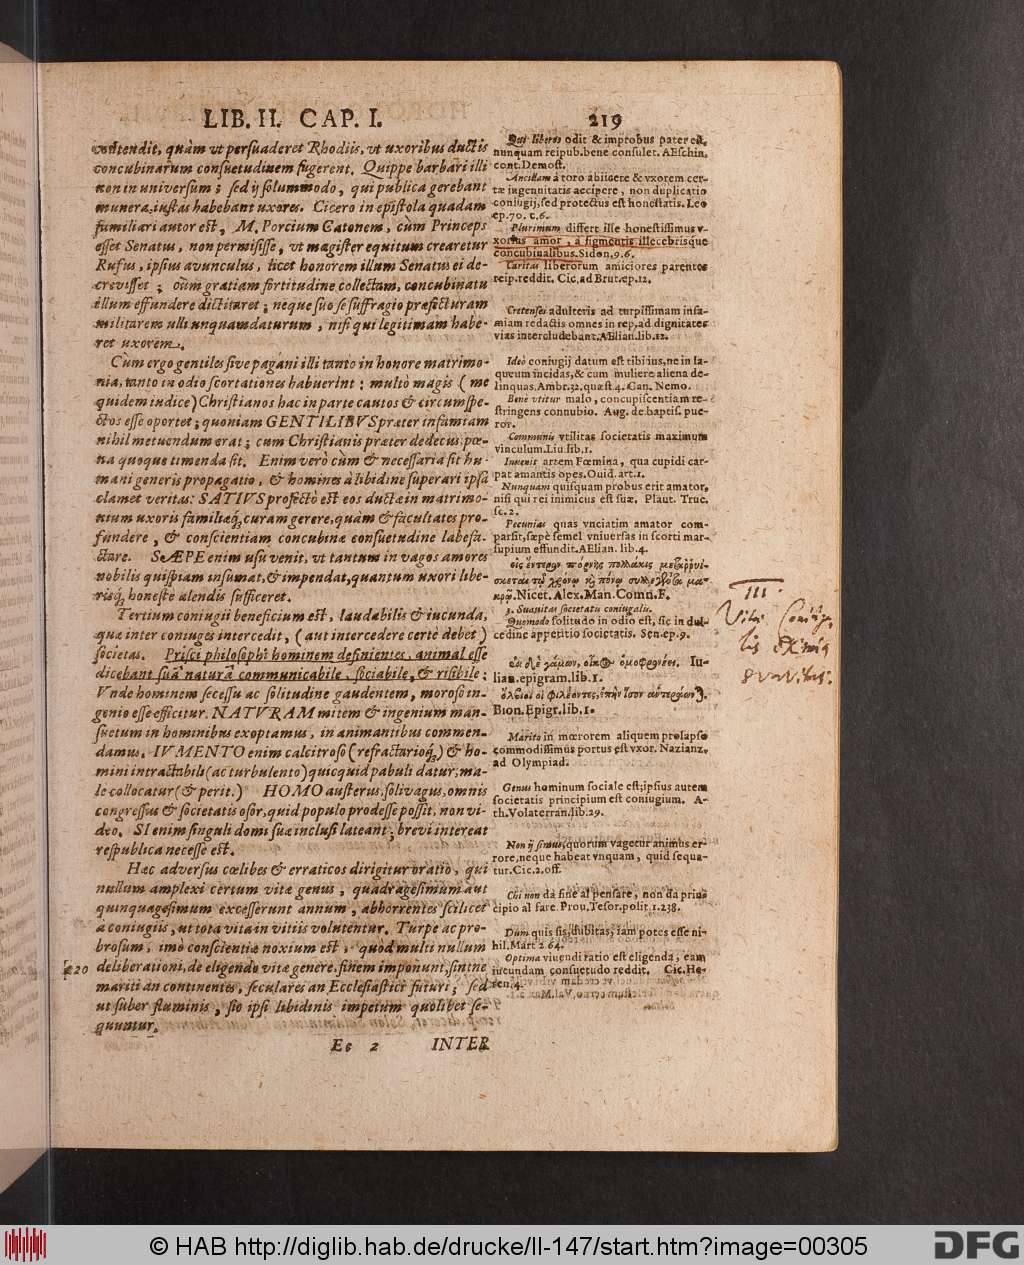 LIB. II. CAP. I. 219
contendit, quàm vt persuaderet Rhodiis, vt uxoribus ductis
concubinarum consuetudinem fugerent. Quippe barbari illi
non in universum; sed ij solummodo, qui publica gerebant
munera, iustas habebant uxores. Cicero in epistola quadam
familiari autor est, M. Porcium Catonem, cùm Princeps
esset Senatus, non permisisse, vt magister equitum crearetur
Rufus, ipsius avunculus, licet honorem illum Senatus ei de-
crevisset; cùm gratiam fortitudine collectam, concubinatu
illum effundere dictitaret; neque suo se suffragio præfecturam
militarem ulli unquam daturum, nisi qui legitimam habe-
ret uxorem.
Cùm ergo gentiles sive pagani illi tanto in honore matrimo-
nia, tanto in odio scortationes habuerint: multò magis (me
quidem iudice) Christianos hac in parte cautos & circumspe-
ctos esse oportet; quoniam GENTILIBVS præter infamiam
nihil metuendum erat; cum Christianis præter dedecus pœ-
na quoque timenda sit. Enim verò cùm & necessaria sit hu-
mani generis propagatio, & homines à libidine superari ipsa
clamet veritas: SATIVS profectò est eos ducta in matrimo-
nium uxoris familiæq; curam gerere, quàm & facultates pro-
fundere, & conscientiam concubinæ consuetudine labefa-
ctare. SÆPE enim usu venit, vt tantum in vagos amores
nobilis quispiam insumat, & impendat, quantum uxori libe-
risq; honeste alendis sufficeret.
Tertium coniugii beneficium est, laudabilis & iucunda,
quæ inter coniuges intercedit, (aut intercedere certè debet)
societas. Prisci philosophi hominem definientes, animal esse
dicebant suâ naturâ communicabile, sociabile, & risibile:
Vnde hominem secessu ac solitudine gaudentem, moroso in-
genio esse efficitur. NATVRAM mitem & ingenium man-
suetum in hominibus exoptamus, in animantibus commen-
damus. IVMENTO enim calcitroso (refractarioq;) & ho-
mini intractabili (ac turbulento) quicquid pabuli datur, ma-
le collocatur (& perit.) HOMO austerus, solivagus, omnis
congressus & societatis osor, quid populo prodesse possit, non vi-
deo. SI enim singuli domi suæ inclusi lateant; brevi intereat
respublica necesse est.
Hæc adversus cœlibes & erraticos dirigitur oratio, qui
nullum amplexi certum vitæ genus, quadragesimum aut
quinquagesimum excesserunt annum, abhorrentes scilicet
a coniugiis, ut tota vita in vitiis volutentur. Turpe ac pro-
brosum, imò conscientiæ noxium est, quòd multi nullum
deliberationi, de eligendo vitæ genere, finem imponunt, sintne
mariti an continentes, seculares an Ecclesiastici futuri; sed
ut suber fluminis, sic ipsi libidinis impetum quolibet se-
quuntur.
Ee 2 INTER
Qui liberos odit & improbus pater est,
nunquam reipub. bene consulet. AEschin.
cont. Demost.
Ancillam à toro abiicere & vxorem cer-
tæ ingenuitatis accipere, non duplicatio
coniugij, sed profectus est honestatis. Leo
ep. 70. c. 6.
Plurimum differt ille honestissimus v-
xorius amor, à figmentis illecebrisque
concubinalibus. Sidon. 9. 6.
Caritas liberorum amiciores parentes
reip. reddit. Cic. ad Brut. ep. 12.
Cretenses adulteris ad turpissimam infa-
miam redactis omnes in rep. ad dignitates
vias intercludebant. AElian. lib. 12.
Ideò coniugij datum est tibi ius, ne in la-
queum incidas, & cum muliere aliena de-
linquas. Ambr. 32. quæst. 4. Can. Nemo.
Benè vtitur malo, concupiscentiam re-
stringens connubio. Aug. de baptis. pue-
ror.
Communis vtilitas societatis maximum
vinculum. Liu. lib. 1.
Inuenit artem Fœmina, qua cupidi car-
pat amantis opes. Ouid. art. 1.
Nunquam quisquam probus erit amator,
nisi qui rei inimicus est suæ. Plaut. Truc.
sc. 2.
Pecunias quas vnciatim amator com-
parsit, sæpè semel vniuersas in scorti mar-
supium effundit. AElian. lib. 4.
Nicet. Alex. Man. Comn. F.
3. Suauitas societatis coniugalis.
Quomodo solitudo in odio est, sic in dul-
cedine appetitio societatis. Sen. ep. 9.
Iu-
lian. epigram. lib. 1.
Bion. Epigr. lib. 1.
Marito in mœrorem aliquem prolapso
commodissimus portus est vxor. Nazianz.
ad Olympiad.
Genus hominum sociale est; ipsius autem
societatis principium est coniugium. A-
th. Volaterran. lib. 29.
Non ij simus, quorum vagetur animus er-
rore, neque habeat vnquam, quid sequa-
tur. Cic. 2. off.
Chi non dà fine al pensare, non dà prin-
cipio al fare. Prou. Tesor. polit. 1. 238.
Dum quis sis, dubitas; iam potes esse ni-
hil. Mart 2. 64.
Optima viuendi ratio est eligenda, eam
iucundam consuetudo reddit. Cic. He-
ren. 4.
III.
Vitæ Coniug.
© HAB http://diglib.hab.de/drucke/li-147/start.htm?image=00305
DFG